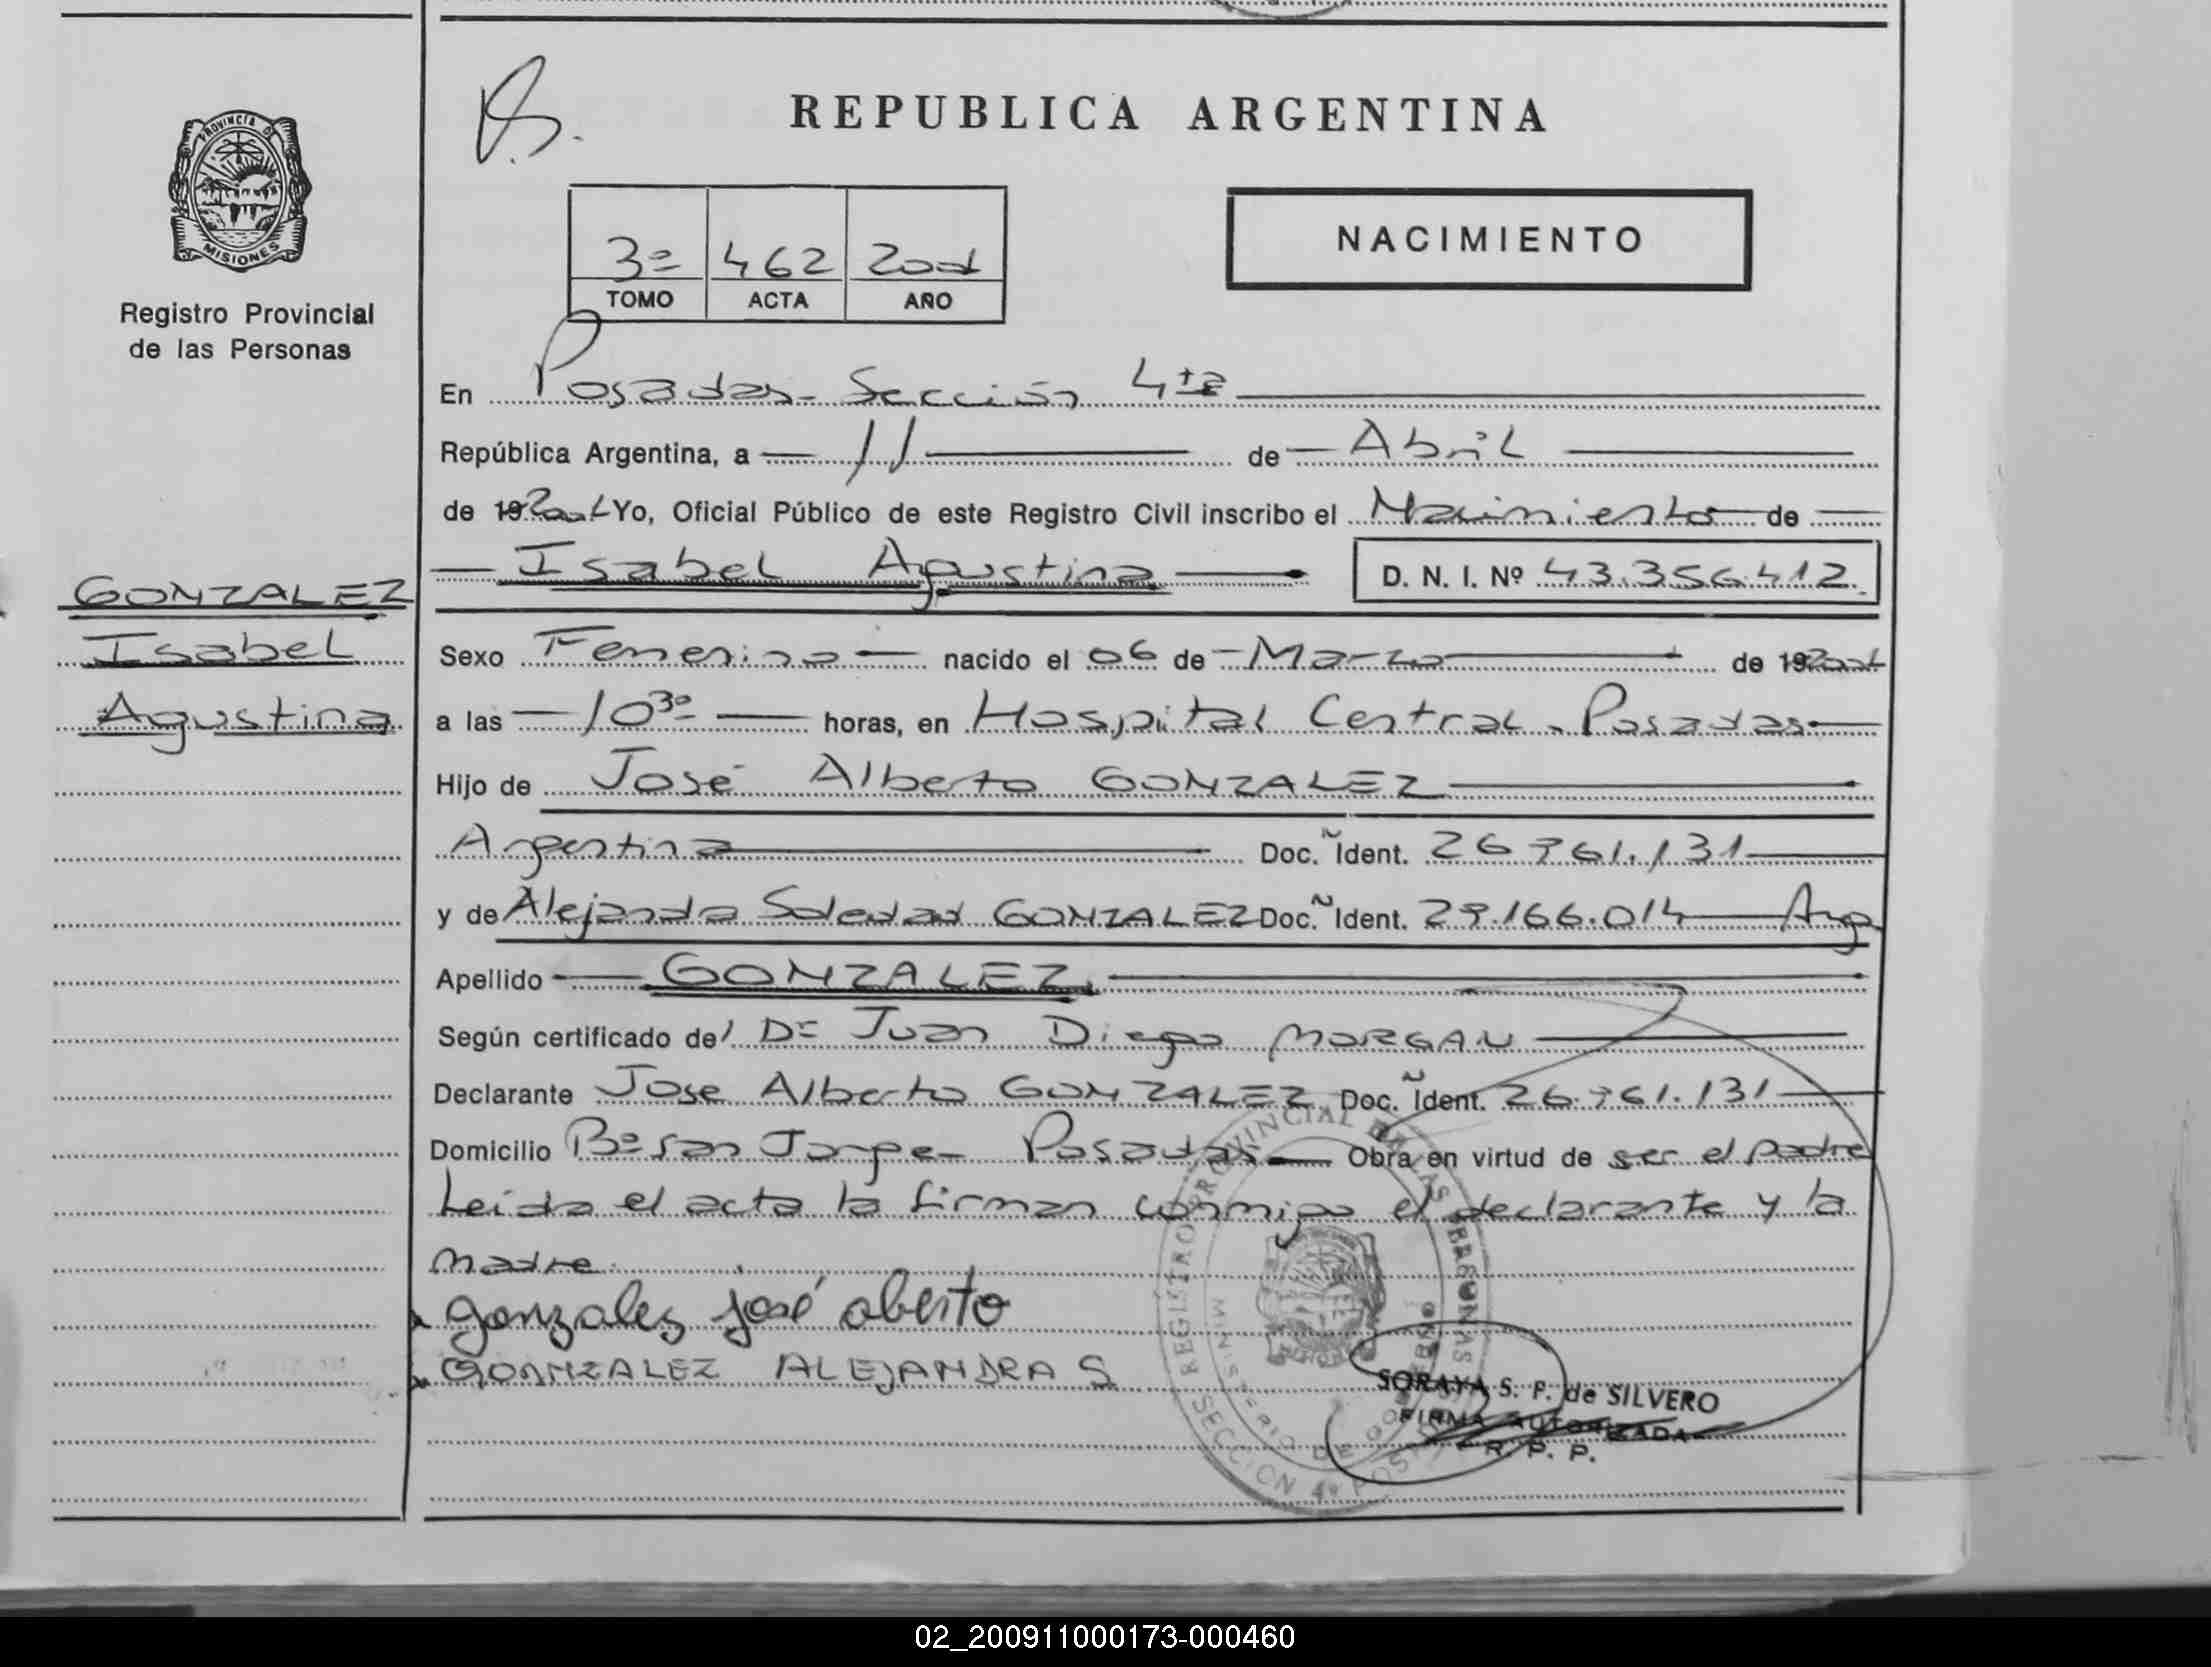 REPUBLICA ARGENTINA
PROVINCIA DE
MISIONES
Registro Provincial
de las Personas
3º 462 2001
TOMO ACTA AÑO
NACIMIENTO
En Posadas - Sección 4ta
República Argentina, a 11 de Abril
de 19 2001 Yo, Oficial Público de este Registro Civil inscribo el Nacimiento de
Isabel Agustina D. N. I. Nº 43.356.412
GONZALEZ
Isabel
Agustina
Sexo Femenino nacido el 06 de Marzo de 19 2001
a las 10 30 horas, en Hospital Central - Posadas
Hijo de José Alberto GONZALEZ
Argentina Doc. Ident. 26.761.131
y de Alejandra Soledad GONZALEZ Doc. Ident. 29.166.014 Arg
Apellido GONZALEZ
Según certificado del Dr Juan Diego MORGAN
Declarante Jose Alberto GONZALEZ Doc. Ident. 26.761.131
Domicilio Bº San Jorge - Posadas Obra en virtud de ser el padre
Leida el acta la firman conmigo el declarante y la
madre
gonzales josé alberto
GONZALEZ ALEJANDRA S
REGISTRO PROVINCIAL DE LAS PERSONAS
MINISTERIO DE GOBIERNO
SECCION 4º
SORAYA S. P. de SILVERO
FIRMA AUTORIZADA
R. P. P.
02_200911000173-000460